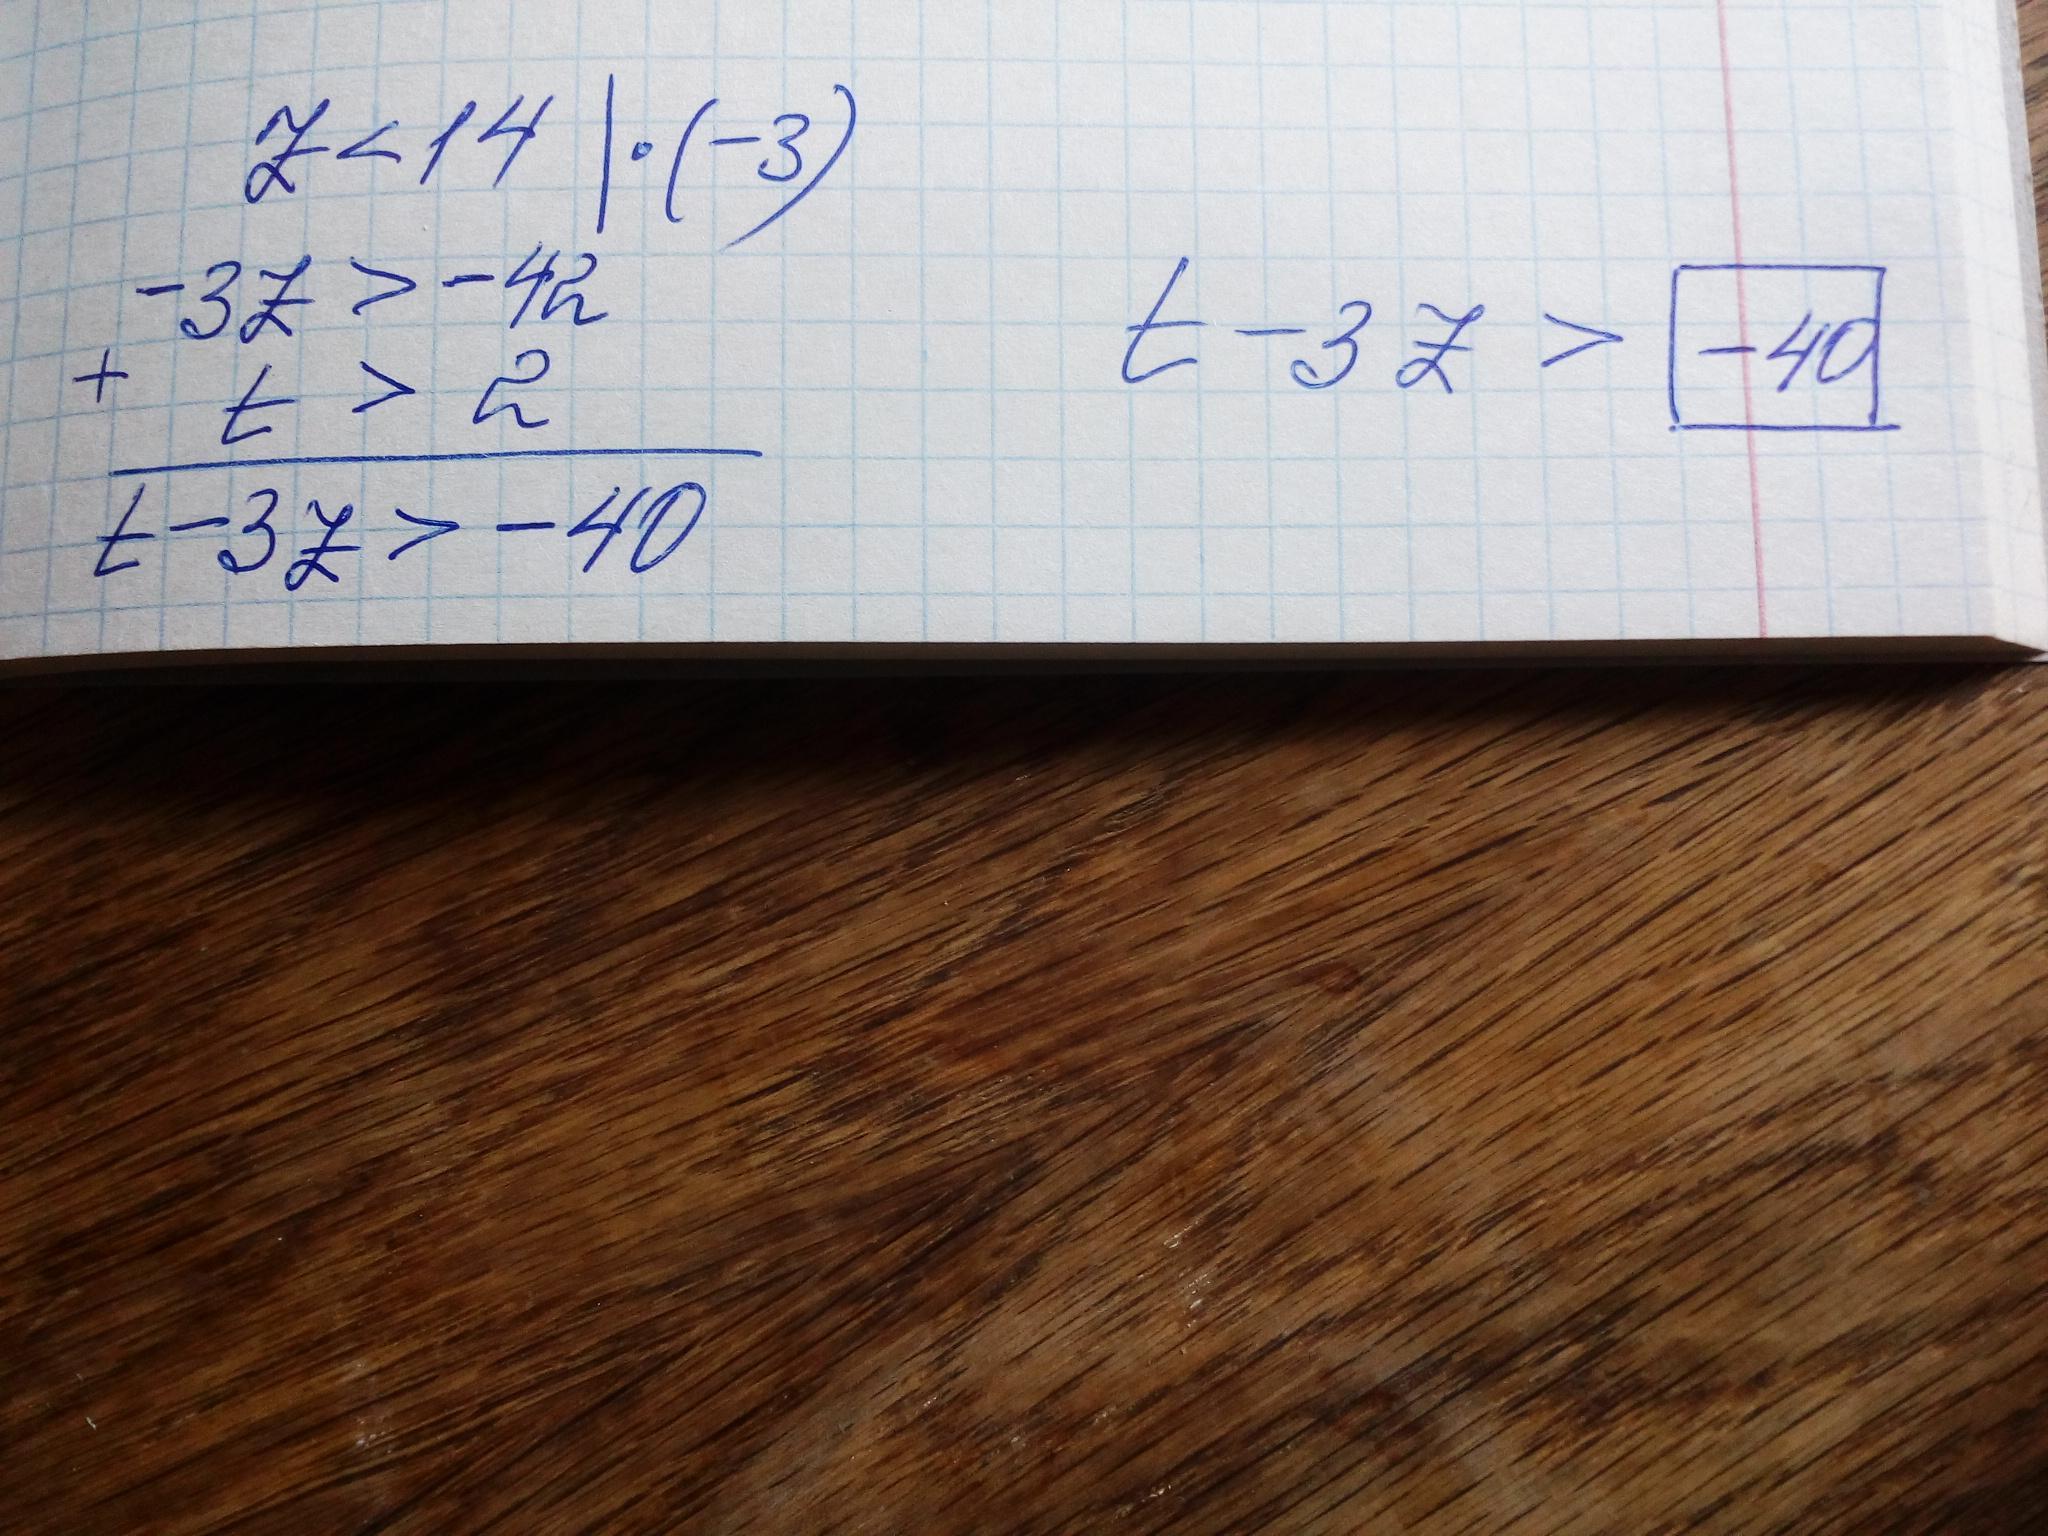 z < 14 | · (-3)
-3z > -42
+ t > 2
t - 3z > -40
t - 3z > -40